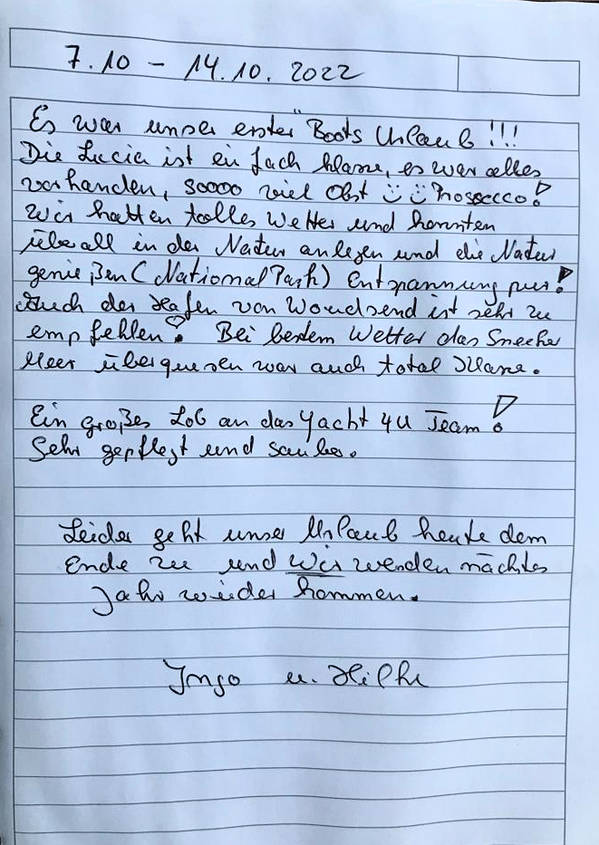 7.10 – 14.10.2022
Es war unser erster "Boots Urlaub !!!
Die Lucia ist einfach klasse, es war alles
vorhanden, soooo viel Obst ☺ ☺ Prosecco!
Wir hatten tolles Wetter und konnten
überall in der Natur anlegen und die Natur
genießen (National Park) Entspannung pur!
Auch der Hafen von Woudsend ist sehr zu
empfehlen! Bei bestem Wetter das Sneeker
Meer überqueren war auch total klasse.
Ein großes Lob an das Yacht 4U Team!
Sehr gepflegt und sauber.
Leider geht unser Urlaub heute dem
Ende zu und Wir werden nächtes
Jahr wieder kommen.
Ingo u. Hilke